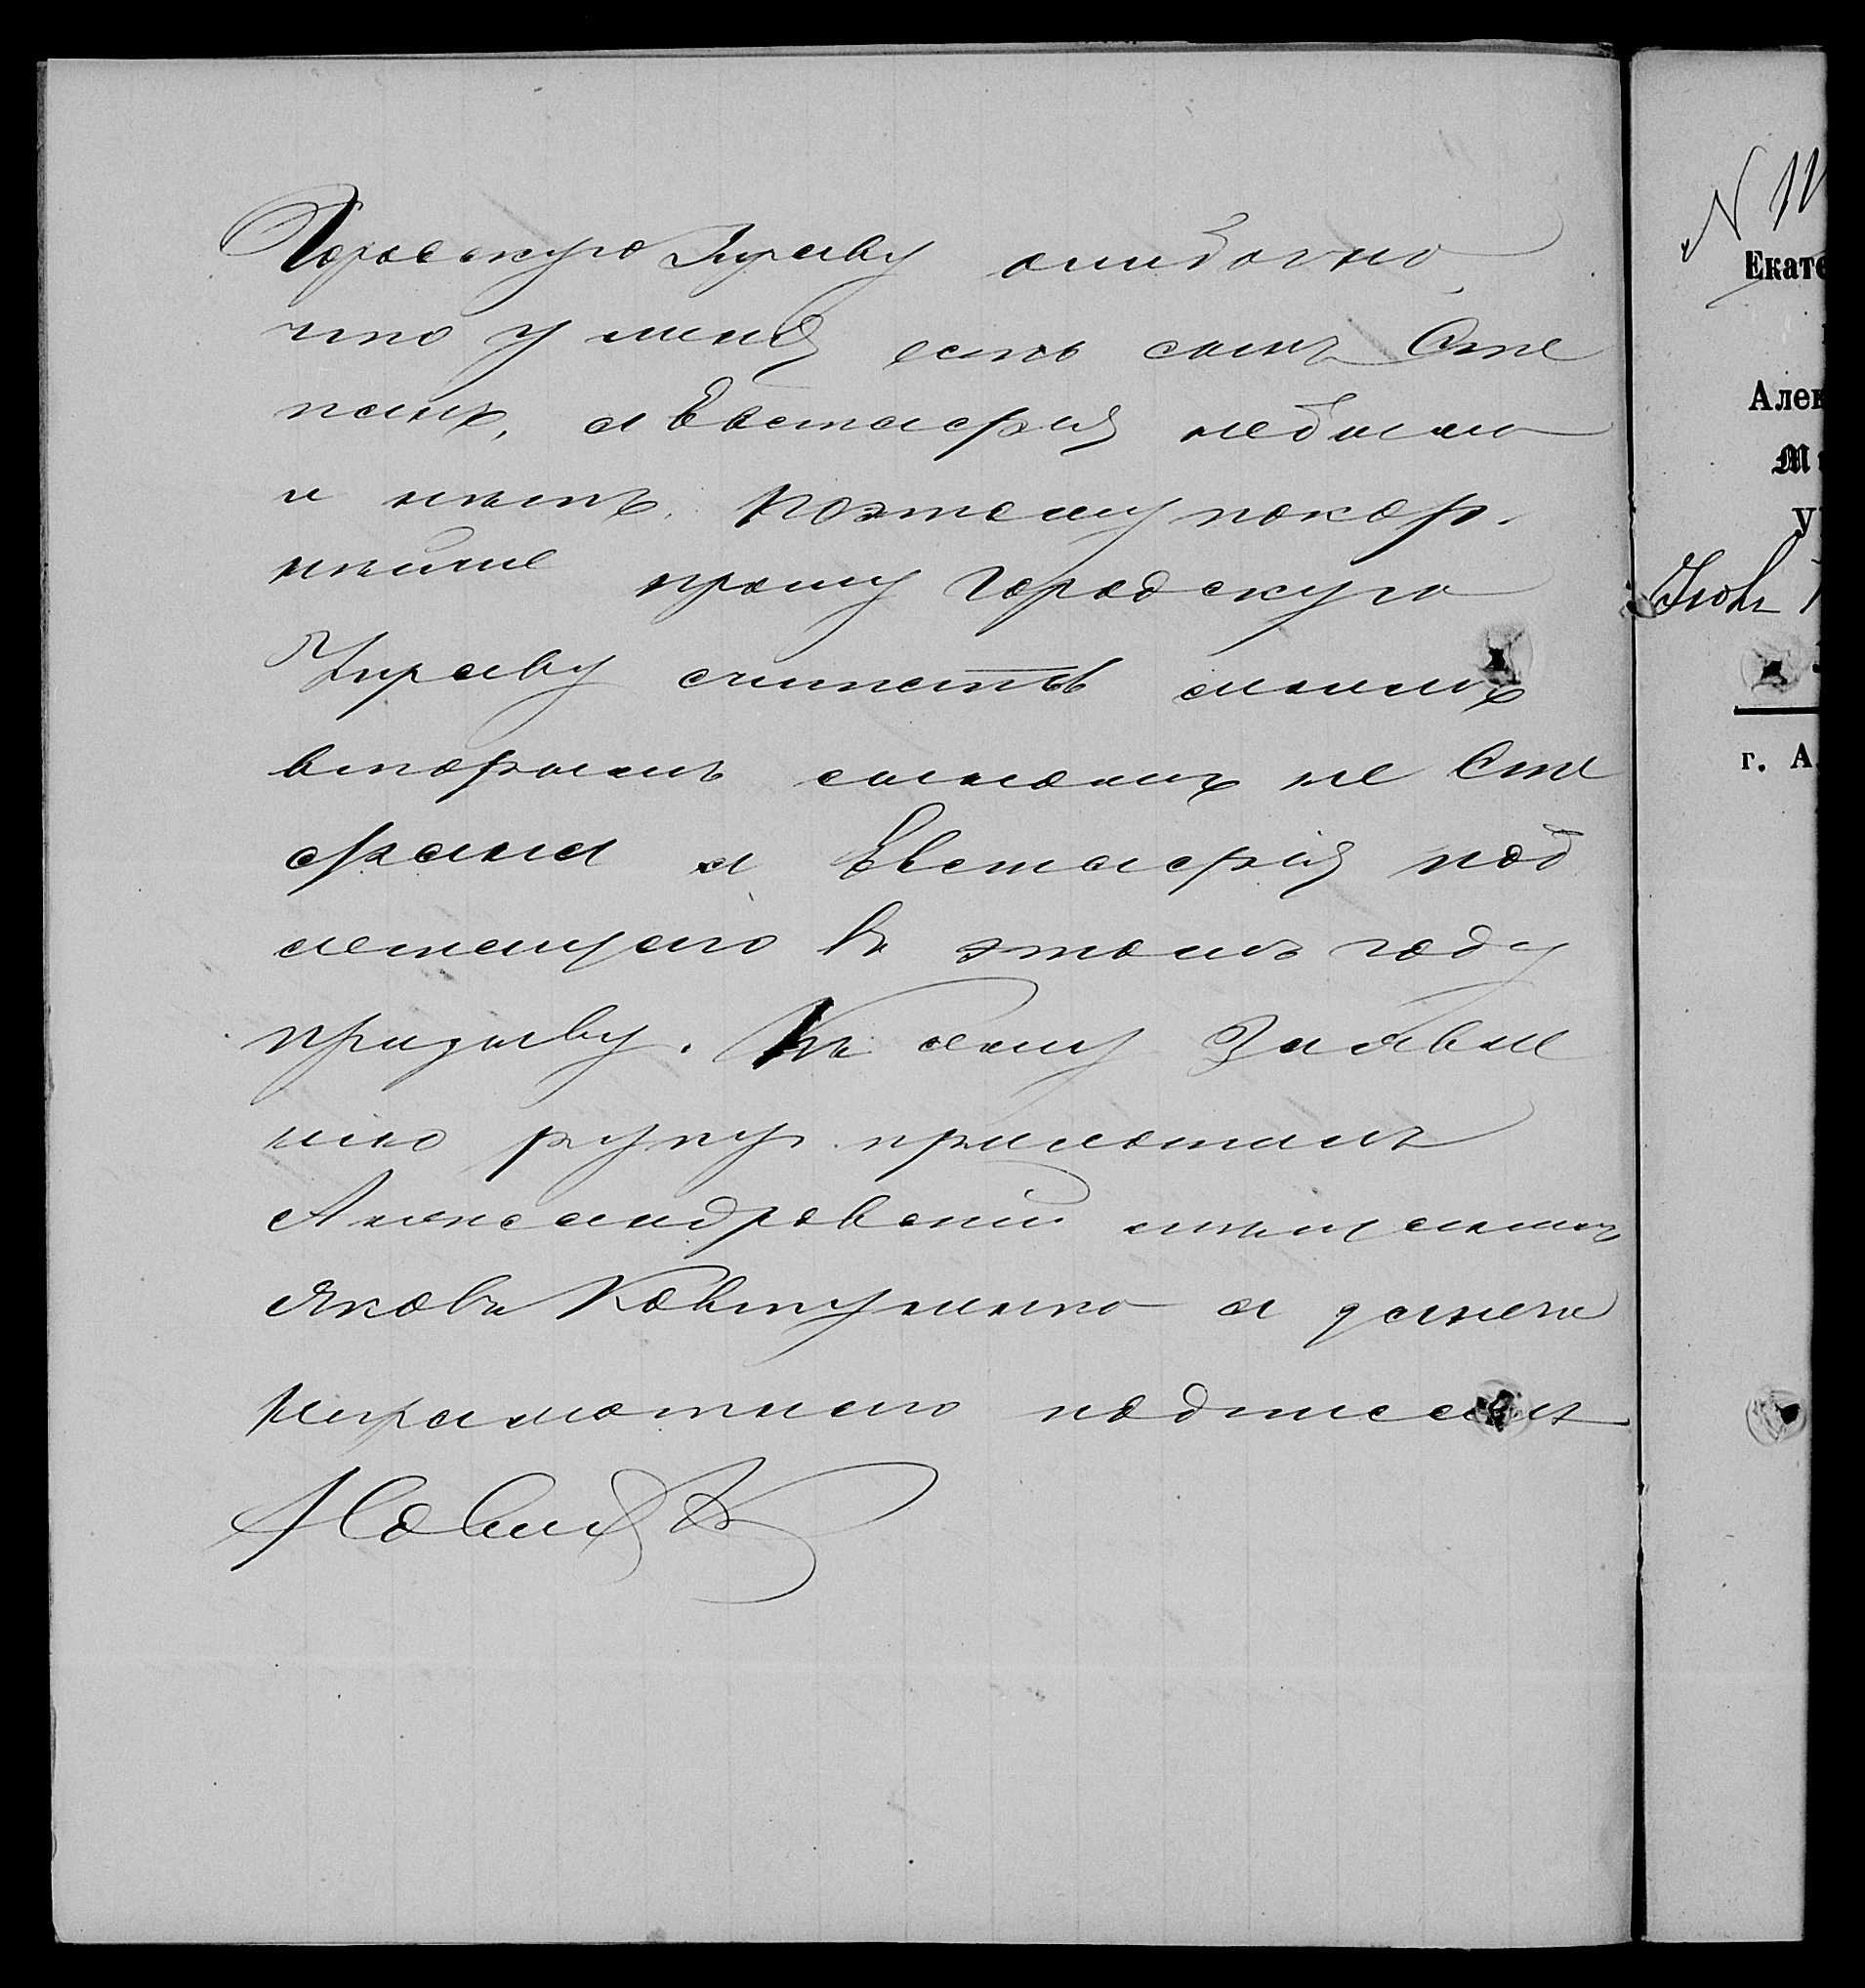 Городскую Управу ошибочно
что у меня есть сынъ Сте
панъ, а Евстафія небыло
и нѣтъ. Поэтому покор.
нѣйше прошу Городскую
Управу считать моимъ
вторымъ сыномъ не Сте
фана а Евстафія под
лежащаго въ этомъ году
призыву. Къ сему Заявле
нію руку приложилъ
Александровскій мѣщанинъ
Яковъ Ковтуненко а за него
неграмотнаго подписалъ
N 11
Екате
Алек
М
у
г. А